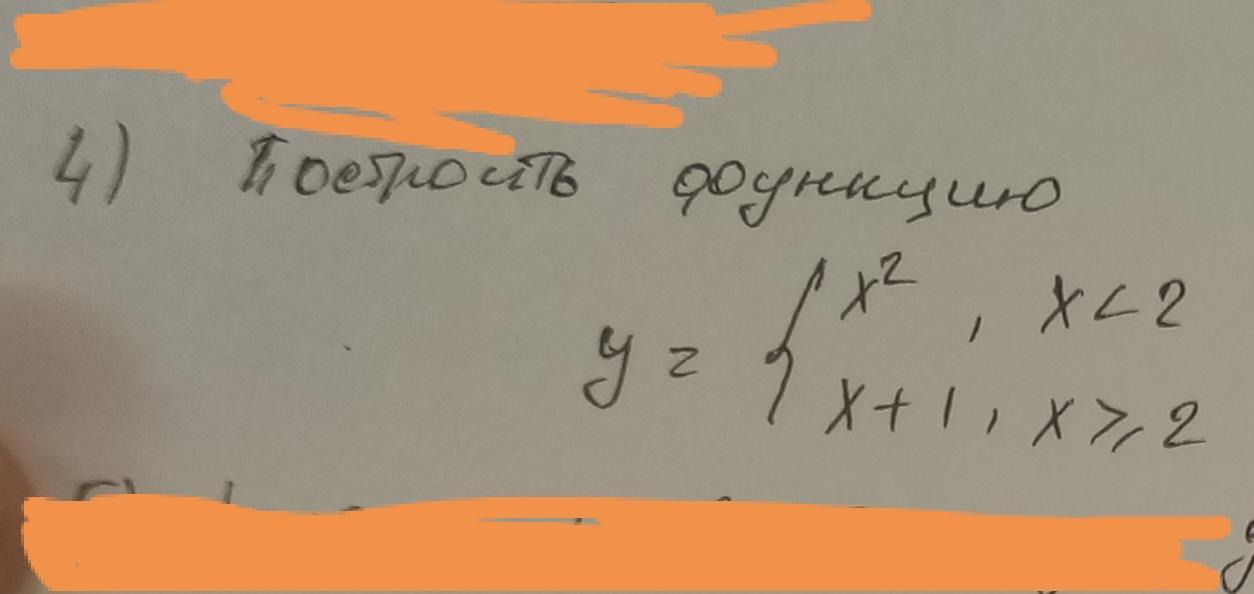 4) Построить функцию
y = { x², x < 2
x + 1, x ⩾ 2